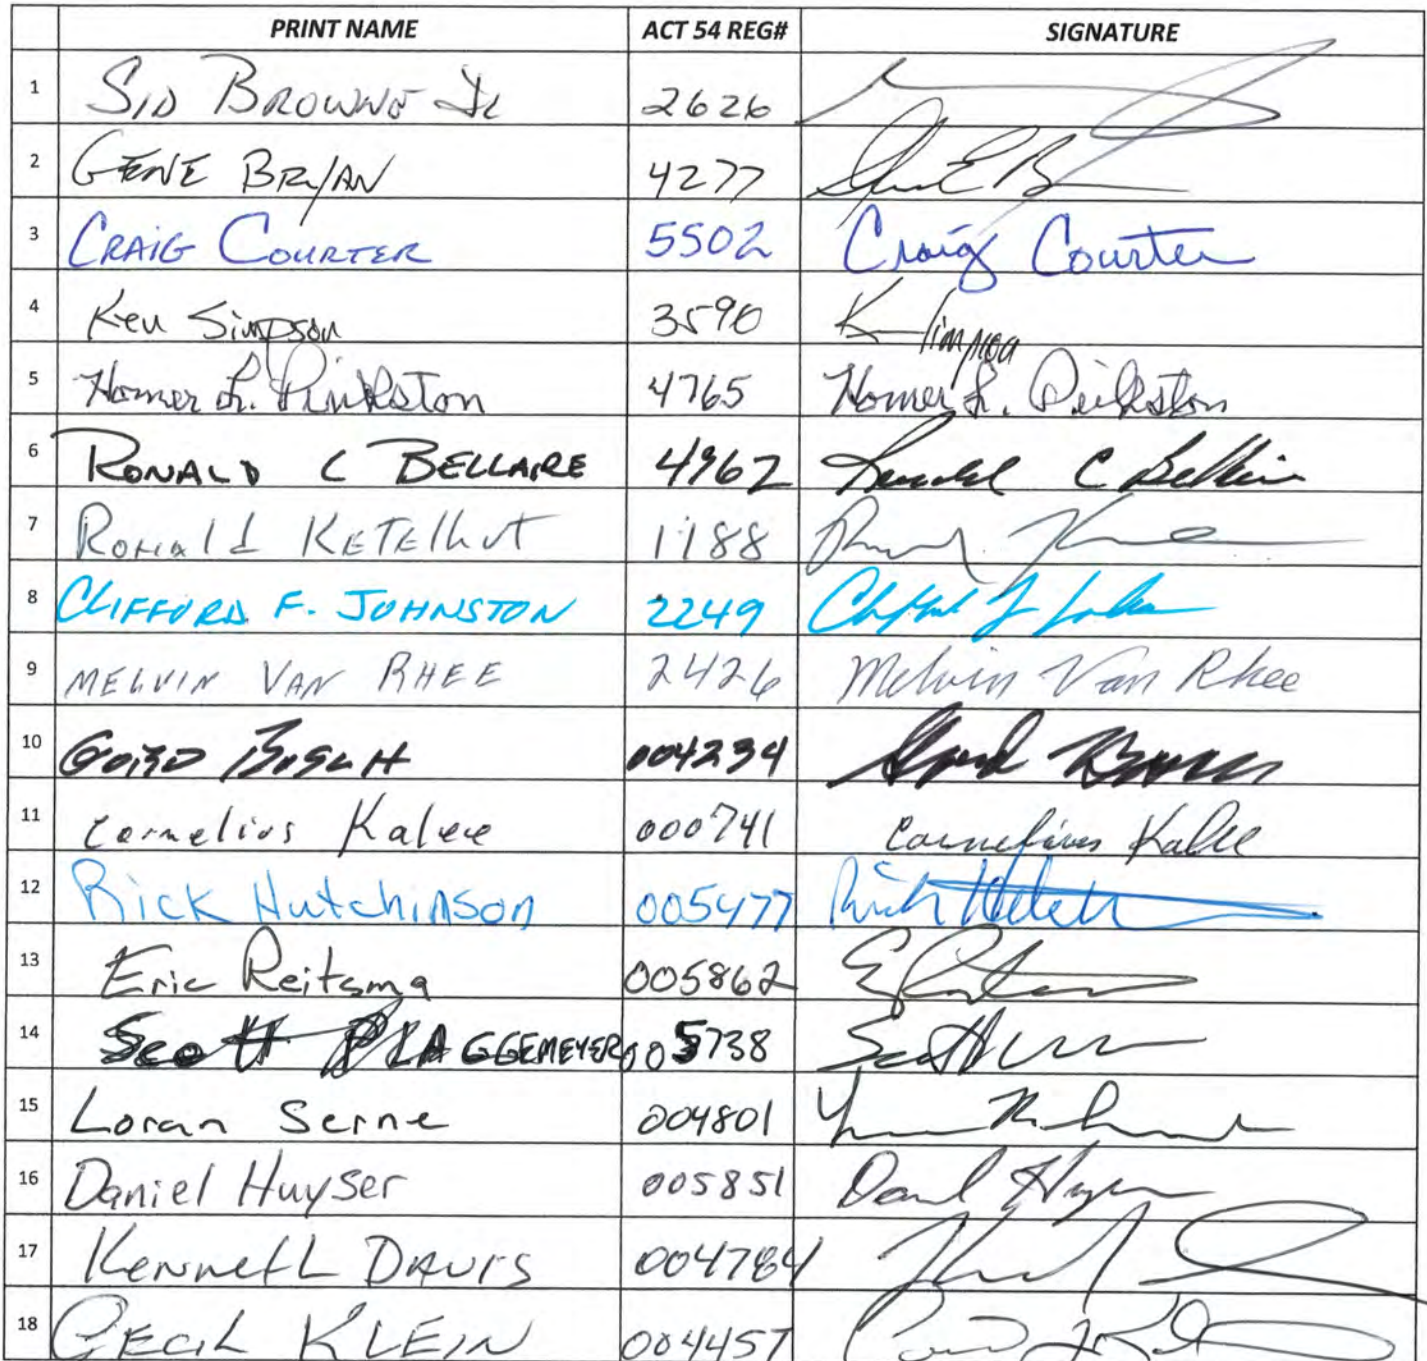 PRINT NAME ACT 54 REG# SIGNATURE
1 SID BROWNE Jr 2626
2 GENE BRYAN 4277
3 CRAIG COURTER 5502 Craig Courter
4 Ken Simpson 3590 K Simpson
5 Homer L. Pinkston 4765 Homer L. Pinkston
6 RONALD C BELLAIRE 4962 Ronald C Bellaire
7 Ronald KETElhut 1188
8 CLIFFORD F. JOHNSTON 2249
9 MELVIN VAN RHEE 2426 Melvin Van Rhee
10 GORD BOSCH 004234
11 Cornelius Kalee 000741 Cornelius Kalee
12 Rick Hutchinson 005477
13 Eric Reitsma 005862
14 Scott PLAGGEMEYER 005738
15 Loran Serne 004801
16 Daniel Huyser 005851
17 Kenneth DAVIS 004784
18 CECIL KLEIN 004457